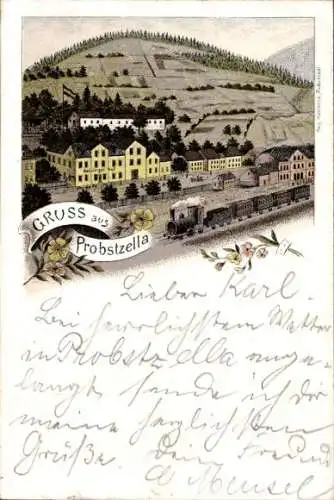 GRUSS aus
Probstzella
Lieber Karl.
Bei herrlichstem Wetter
in Probstzella ange-
langt sende ich dir
meine herzlichsten
Grüße. Dein Freund
Mensel